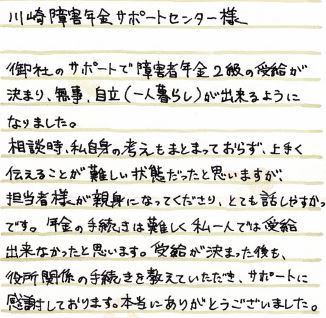 川崎障害年金サポートセンター様
御社のサポートで障害者年金2級の受給が
決まり、無事、自立(一人暮らし)が出来るように
なりました。
相談時、私自身の考えもまとまっておらず、上手く
伝えることが難しい状態だったと思いますが、
担当者様が親身になってくださり、とても話しやすかっ
です。年金の手続きは難しく私一人では受給
出来なかったと思います。受給が決まった後も、
役所関係の手続きを教えていただき、サポートに
感謝しております。本当にありがとうございました。